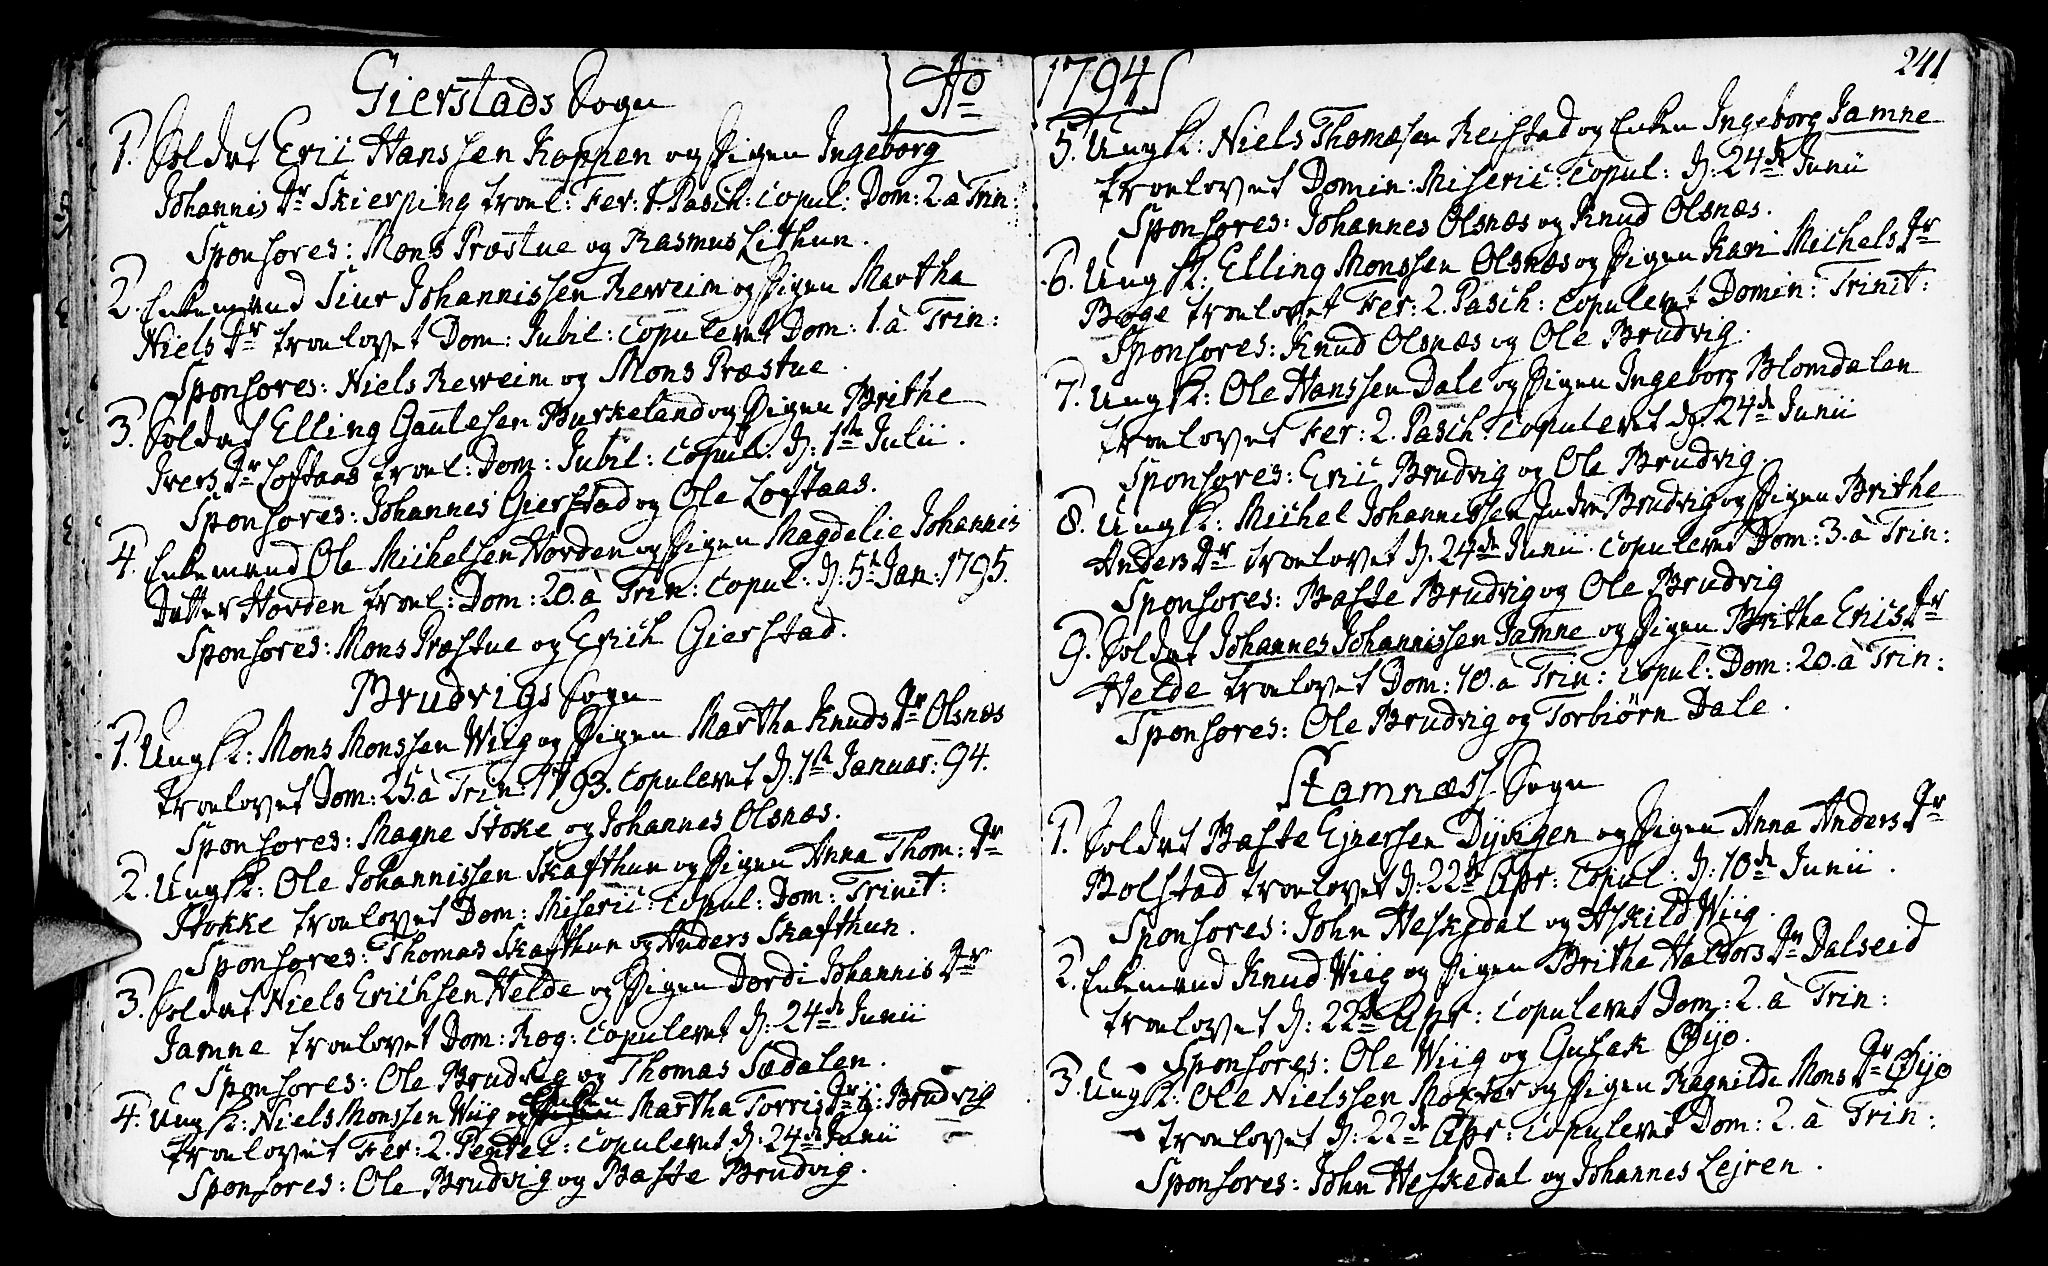 Gierstads Sogn
Ao
1. Soldat Eric Hanssen Koppen og Pigen Ingeborg
Johannis Dr Skierping troel: Fer: 1. Pasch: copul: Dom: 2. à Trin:
Sponsores: Mons Præstue og Rasmus Lithun.
2. Enkemand Siur Johannissen Reweim og Pigen Martha
Niels Dr troelovet Dom: Jubil: copuleret Dom: 1. à Trin:
Sponsores: Niels Reweim og Mons Præstue.
3. Soldat Elling Gautesen Burkeland og Pigen Brithe
Ivers Dr Loftaas troel: Dom: Jubil: copul: d: 1ste Julii.
Sponsores: Johannes Gierstad og Ole Loftaas.
4. Enkemand Ole Michelsen Horden og Pigen Magdelie Johannis
Datter Horden troel: Dom: 20. à Trin: copul: d: 5te Jan: 1795.
Sponsores: Mons Præstue og Erich Gierstad.
Brudvigs Sogn
1. Ung K: Mons Monssen Wiig og Pigen Martha Knuds Dr Olsnæs
troelovet Dom: 25. à Trin: 1793. copuleret d: 1ste Januar: 94.
Sponsores: Magne Stoke og Johannes Olsnæs.
2. Ung K: Ole Johannissen Skafthun og Pigen Anna Thom: Dr
Stokke troelovet Dom: Miseric: copul: Dom: Trinit:
Sponsores: Thomas Skafthun og Anders Skafthun.
3. Soldat Niels Erichsen Helde og Pigen Dordi Johannis Dr
Jamne troelovet Dom: Rog: copuleret d: 24de Junii
Sponsores: Ole Brudvig og Thomas Sædalen.
4. Ung K: Niels Monssen Wiig og Enken Martha Torris Dr Brudvig
troelovet Fer: 2. Pentec: copuleret d: 24de Junii
Sponsores: Ole Brudvig og Baste Brudvig.
1794
241
5. Ung K: Niels Thomæsen Reistad og Enken Ingeborg Jamne
troelovet Domin: Miseric: copul: d: 24de Junii
Sponsores: Johannes Olsnæs og Knud Olsnæs.
6. Ung K: Elling Monssen Olsnæs og Pigen Kari Michels Dr
Bøge troelovet Fer: 2. Pasch: copuleret Domin: Trinit:
Sponsores: Knud Olsnæs og Ole Brudvig.
7. Ung K: Ole Hanssen Dale og Pigen Ingeborg Blomdalen
troelovet Fer: 2. Pasch: copuleret d: 24de Junii
Sponsores: Eric Brudvig og Ole Brudvig.
8. Ung K: Michel Johannissen Indre Brudvig og Pigen Brithe
Anders Dr troelovet d: 24de Junii. copuleret Dom: 3. à Trin:
Sponsores: Baste Brudvig og Ole Brudvig
9. Soldat Johannes Johannissen Jamne og Pigen Brithe Erics Dr
Helde troelovet Dom: 10. à Trin: copul: Dom: 20. à Trin:
Sponsores: Ole Brudvig og Torbiørn Dale.
Stamnæss Sogn
1. Soldat Baste Ejnersen Dyvgen og Pigen Anna Anders Dr
Bolstad troelovet d: 22de Apr: copul: d: 10de Junii.
Sponsores: John Heskedal og Askild Wiig.
2. Enkemand Knud Wiig og Pigen Brithe Haldors Dr Dalseid
troelovet d: 22de Apr: copuleret Dom: 2. à Trin:
Sponsores: Ole Wiig og Gulak Øÿo.
3. Ung K: Ole Nielssen Moxter og Pigen Ragnilde Mons Dr Øÿo
troelovet d: 22de Apr: copuleret Dom: 2. à Trin:
Sponsores: John Heskedal og Johannes Lejren.